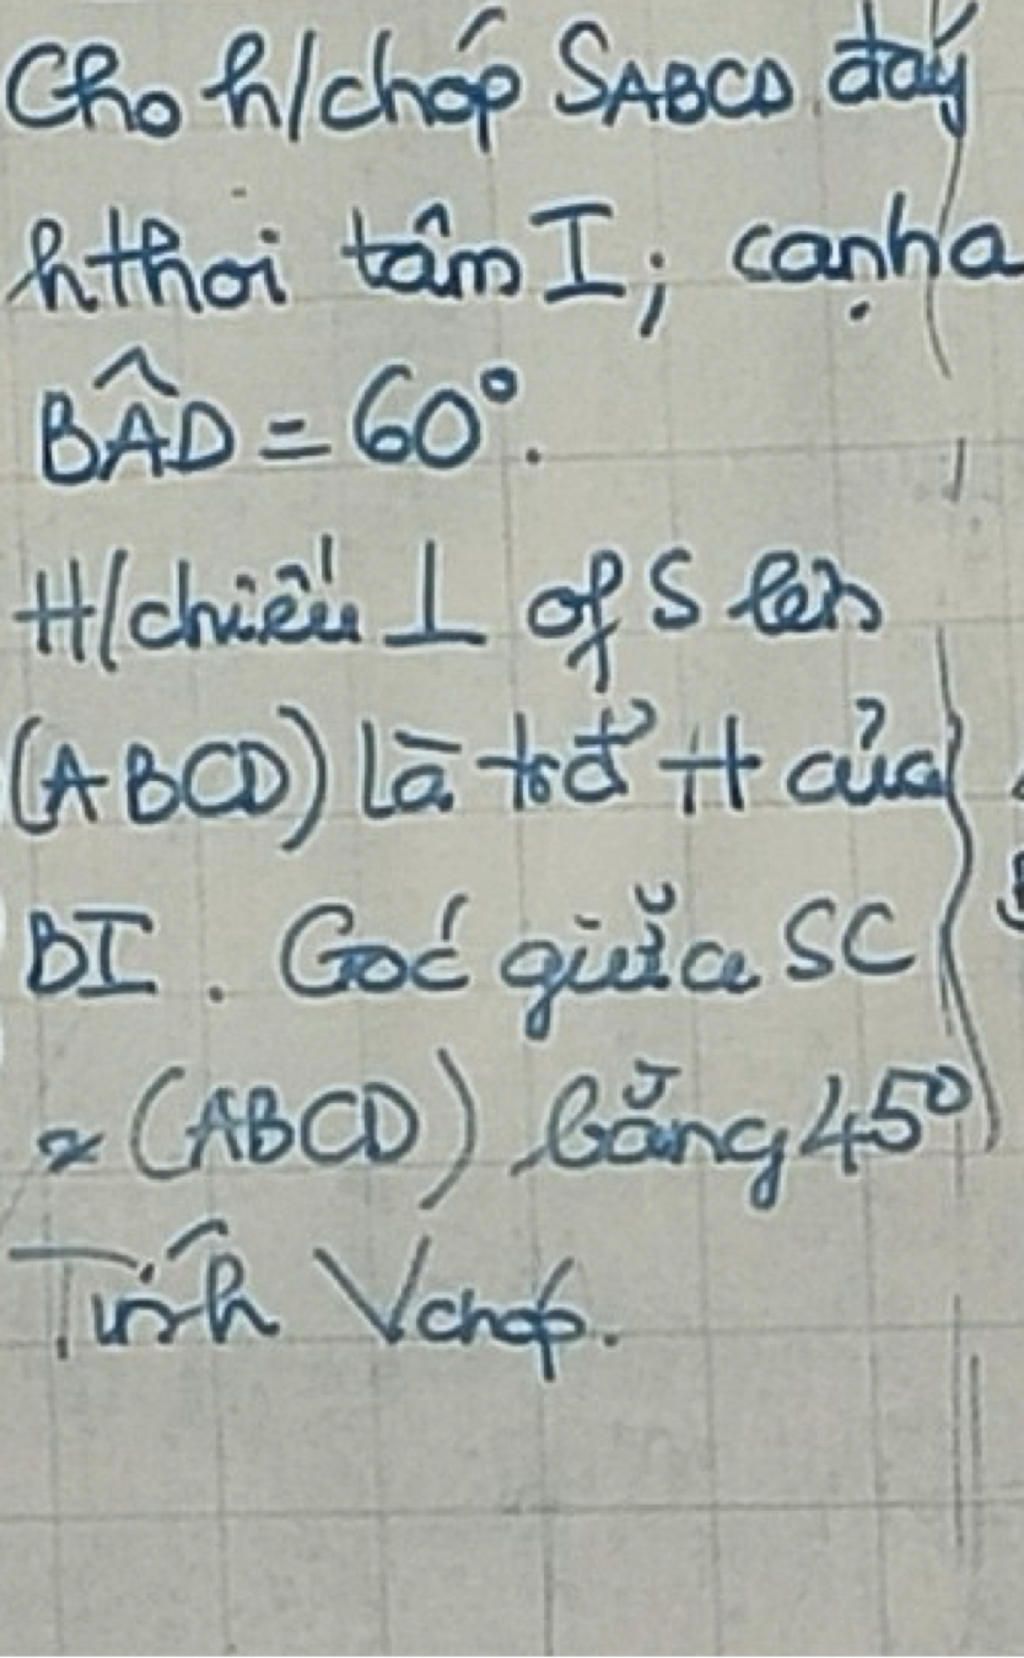 Cho h/chóp SABCD đáy
hthoi tâm I; cạnh a
BÂD = 60°.
H/chiếu ⊥ of S lên
(ABCD) là trđ' H của
BI. Góc giữa SC
& (ABCD) bằng 45°
Tính Vchóp.